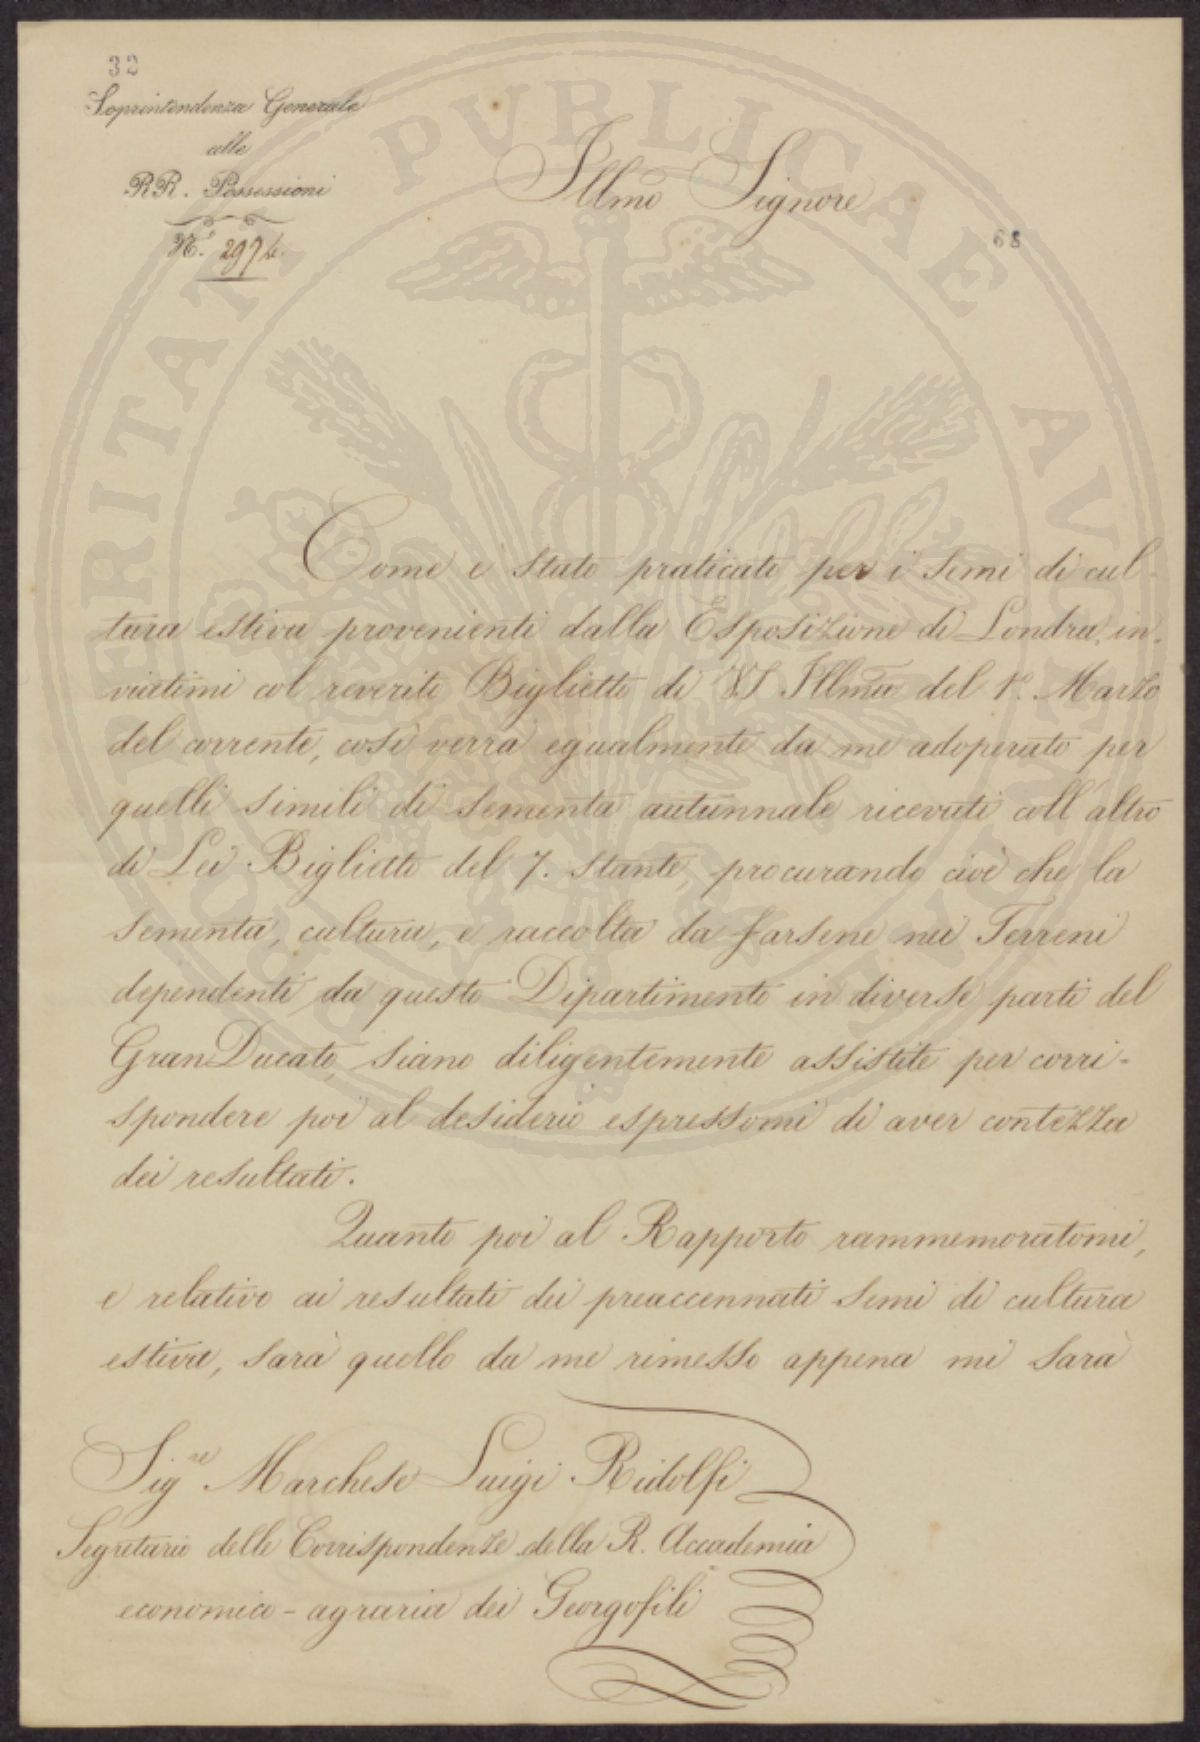 33
Soprintendenza Generale
alle
RR. Possessioni
N.° 2974.
Illmo Signore
68
Come è stato praticato per i semi di cul-
tura estiva provenienti dalla Esposizione di Londra, in-
viatimi col reverito Biglietto di VS Illma del 1°. Marzo
del corrente, così verrà egualmente da me adoperato per
quelli simili di sementa autunnale ricevuti coll'altro
di Lei Biglietto del 7. stante, procurando cioè che la
sementa, cultura, e raccolta da farsene nei Terreni
dependenti da questo Dipartimento in diverse parti del
GranDucato, siano diligentemente assistite per corri-
spondere poi al desiderio espressomi di aver contezza
dei resultati.
Quanto poi al Rapporto rammemoratomi,
e relativo ai resultati dei preaccennati semi di cultura
estiva, sarà quello da me rimesso appena mi sarà
Sig.re Marchese Luigi Ridolfi
Segretario delle Corrispondenze della R. Accademia
economico-agraria dei Georgofili
PROSPERITATI PUBLICAE AUGENDAE